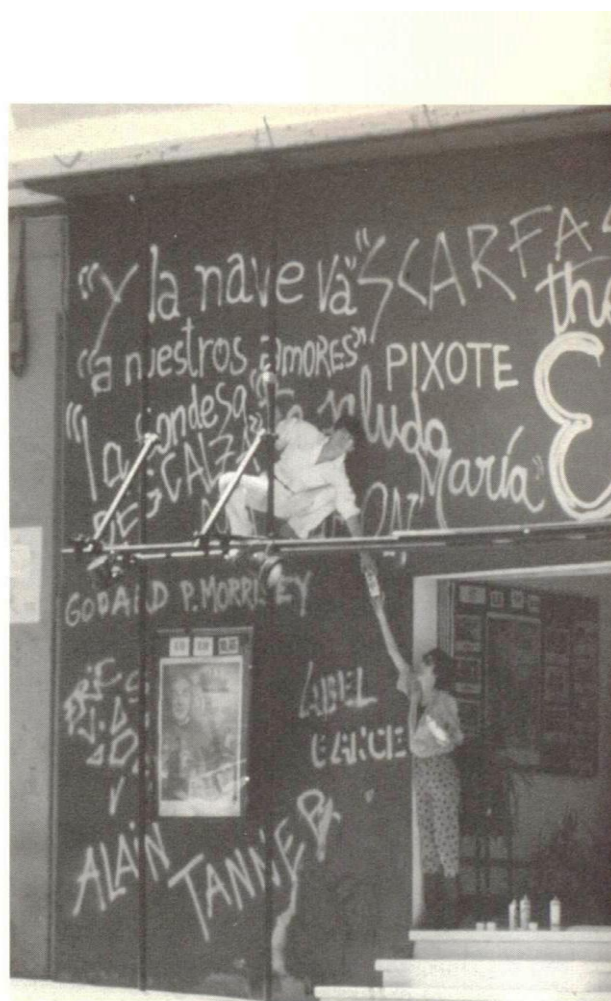 "Y la nave va" "SCARFAS
the
"a nuestros amores" PIXOTE
"la condesa saluda
DESCALZA María"
GODARD P. MORRISEY
ABEL
GANCE
ALAIN
TANNER